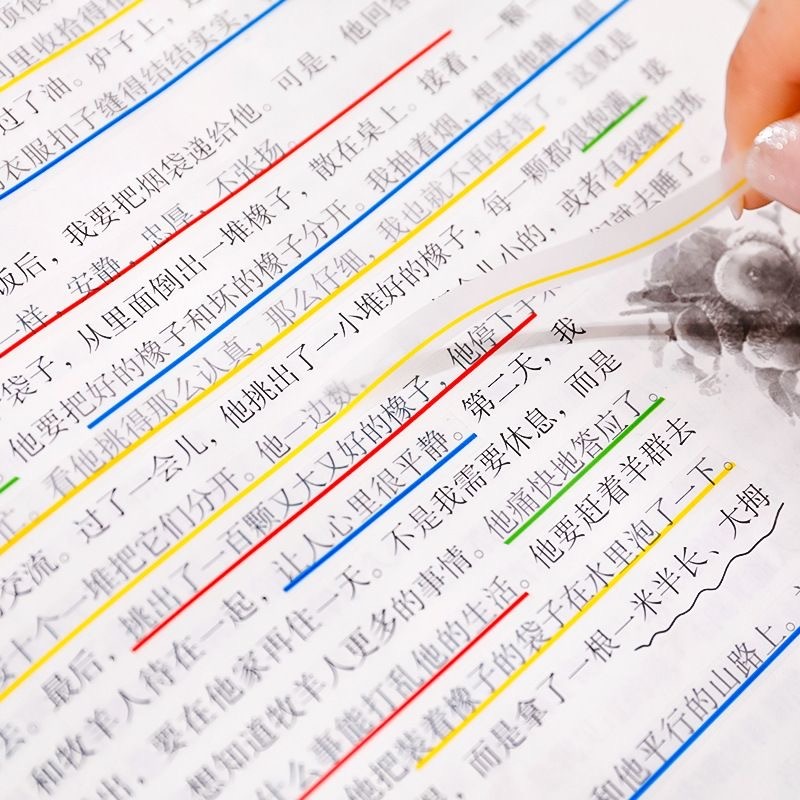 里收拾得很
过了油。炉子上，
衣服扣子缝得结结实实，
饭后，我要把烟袋递给他。可是，他回答
一样，安静，忠厚，不张扬。
袋子，从里面倒出一堆橡子，散在桌上。接着，一颗一颗
他要把好的橡子和坏的橡子分开。我抽着烟，想帮他挑，但
看他挑得那么认真，那么仔细，我也就不再坚持了。这就是
交流。过了一会儿，他挑出了一小堆好的橡子，每一颗都很饱满。接
十个一堆把它们分开。他一边数，个儿小的，或者有裂缝的拣
最后，挑出了一百颗又大又好的橡子，他停下手来，我们就去睡了。
和牧羊人待在一起，让人心里很平静。第二天，我
要在他家再住一天。不是我需要休息，而是
想知道牧羊人更多的事情。他痛快地答应了。
什么事能打乱他的生活。他要赶着羊群去
他把装着橡子的袋子在水里泡了一下。
而是拿了一根一米半长、大拇
和他平行的山路上。